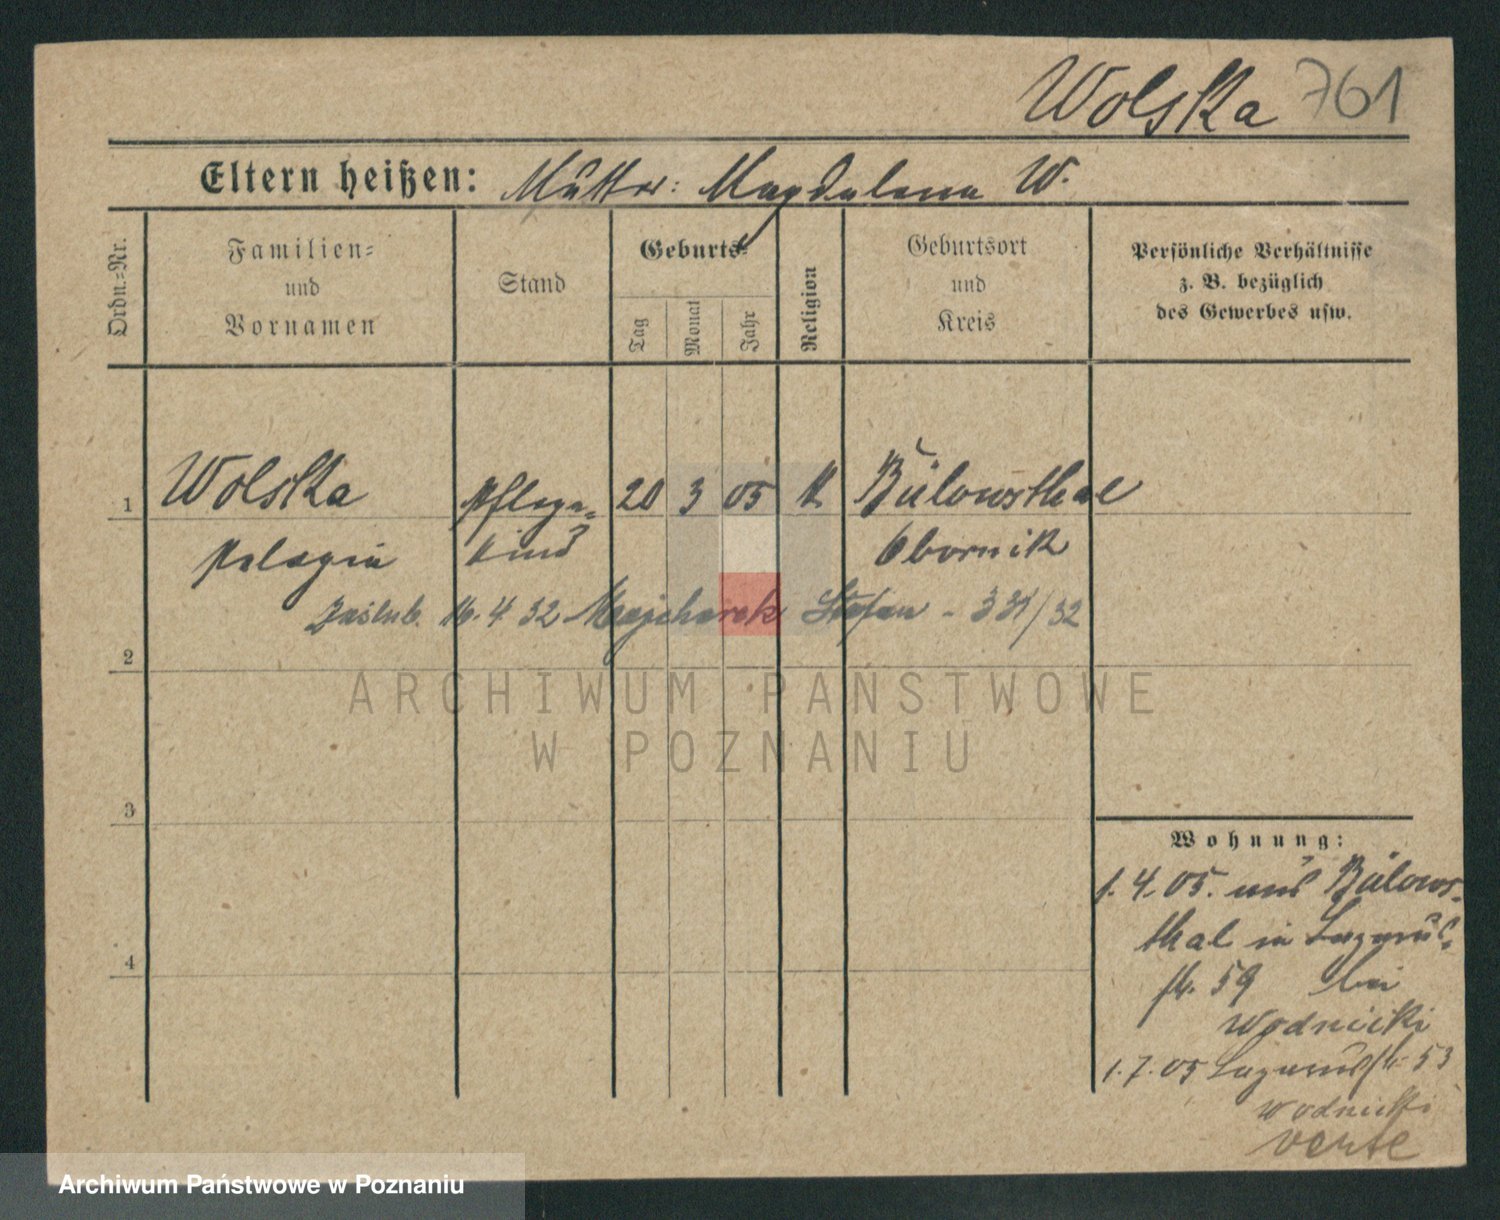 Wolska 761
Eltern heißen: Mutter: Magdalena W.
Ordn.=Nr.
Familien=
und
Vornamen
Stand
Geburts=
Tag
Monat
Jahr
Religion
Geburtsort
und
Kreis
Persönliche Verhältnisse
z. B. bezüglich
des Gewerbes usw.
1 Wolska Pflege= 20 3 05 k Bülowsthal
Pelagia kind Obornik
Zaślub. 16. 4 32 Majcherek Stefan - 331/32
2
ARCHIWUM PAŃSTWOWE
W POZNANIU
3
Wohnung:
1. 4. 05. aus Bülows=
thal in Lazarus=
str. 59 bei
Wodnicki
4
1. 7. 05 Lazarusstr. 53
Wodnicki
verte
Archiwum Państwowe w Poznaniu